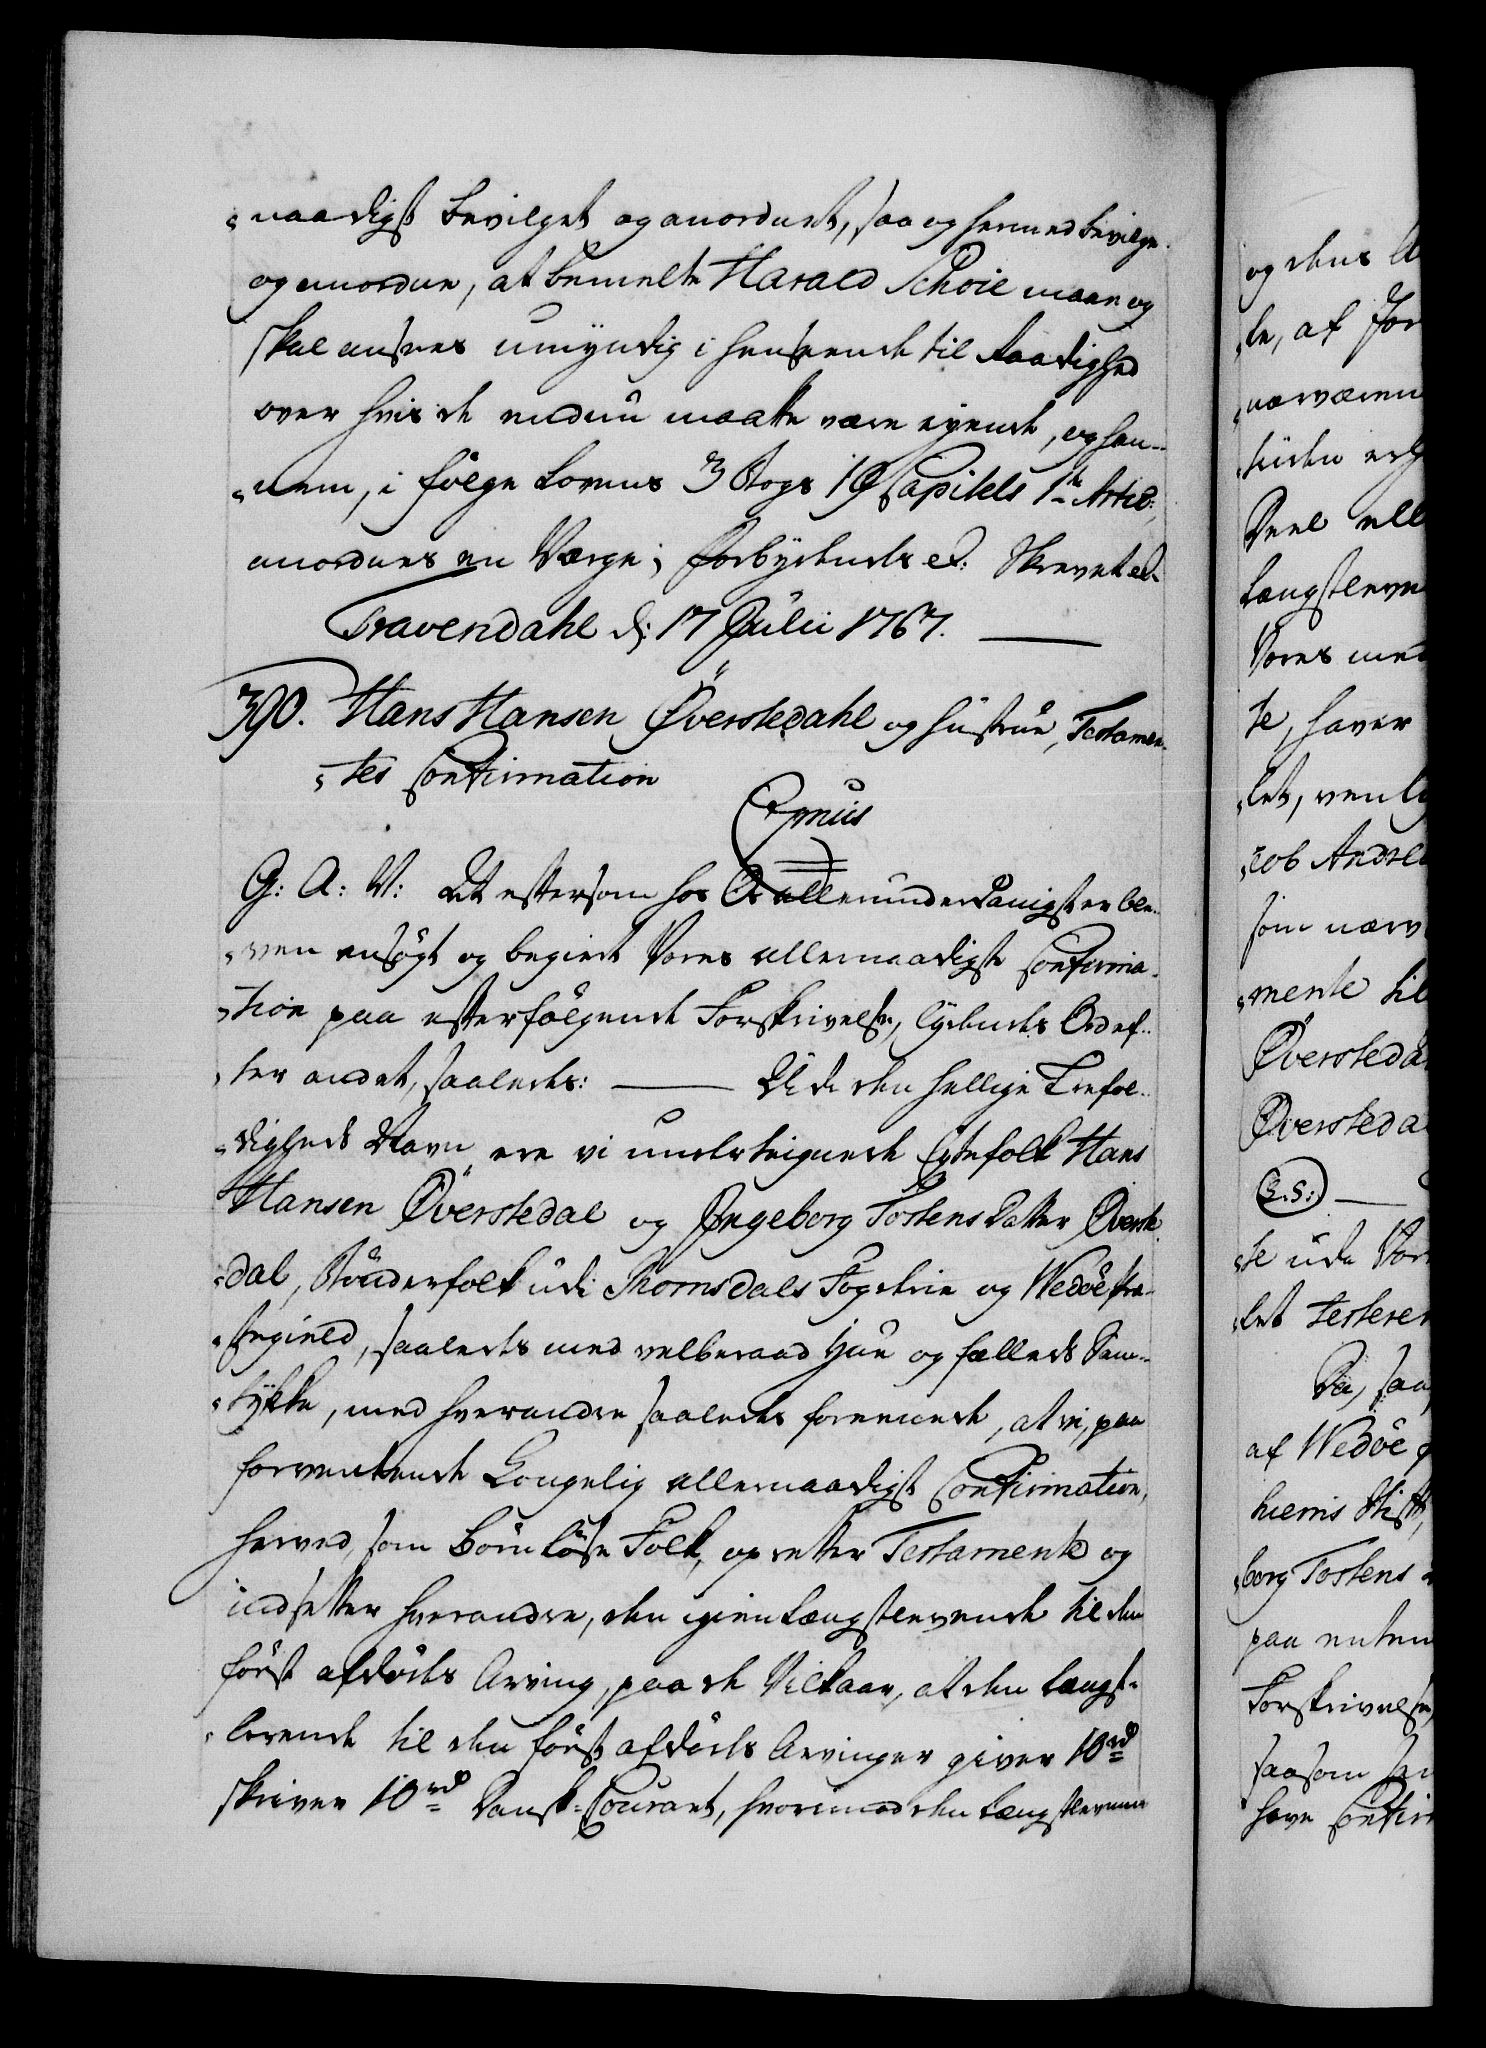 -naadigst bevilget og anordnet, saa og hermed bevilge
og anordne, at bemelte Harald Schøie maae og
skal ansees umyndig i henseende til Raadighed
over hvis de endnu maatte være eyende, og han-
-nem, i følge Lovens 3 Bogs 19 Capitels 1te Articl:,
anordnes en Værge; Forbydendes et: Skrevet et.
Travendahl d: 17 Julii 1767.
390. Hans Hansen Øverstedahl og Hustrue, Testamen-
-tes Confirmation
G: A: V: At eftersom hos Os allerunderdanigst er ble-
-ven ansøgt og begiert Vores allernaadigste Confirma-
-tion paa efterfølgende Forskrivelse, lydendes Ord ef-
-ter andet, saaledes: Udi den hellige Trefol-
-digheds Navn ere vi undertegnede Egtefolk Hans
Hansen Øverstedal og Ingeborg Tostens Datter Øverste-
-dal, Bønderfolk udi Romsdals Fogderie og Wedøe Præ-
-stegield, saaledes med velberaad Hue og fælleds Sam-
-tykke, med hverandre saaledes foreenede, at vi, paa
forventende Kongelig allernaadigst Confirmation,
herved, som Børnløse Folk, opretter Testamente og
indsetter hverandre, den igienlængstlevende til den
først afdødes Arving, paa de Vilkaar, at den længst-
-levende til den først afdødes Arvinger giver 10 rd
skriver 10 rd Dansk Courant, hvorimod den længstlevende
og dens A
-te, at For
nærværen
Deel ell
længstleve
Vores med
te, haver
-cob Andre
som nærv
-mente til
Øversteda
Øversteda
(L.S.)
te udi Vor
-let testere
Da, saa
af Wedøe
hiems Stift,
-borg Tostens
paa enten
Forskrivelse,
saasom
have Confir